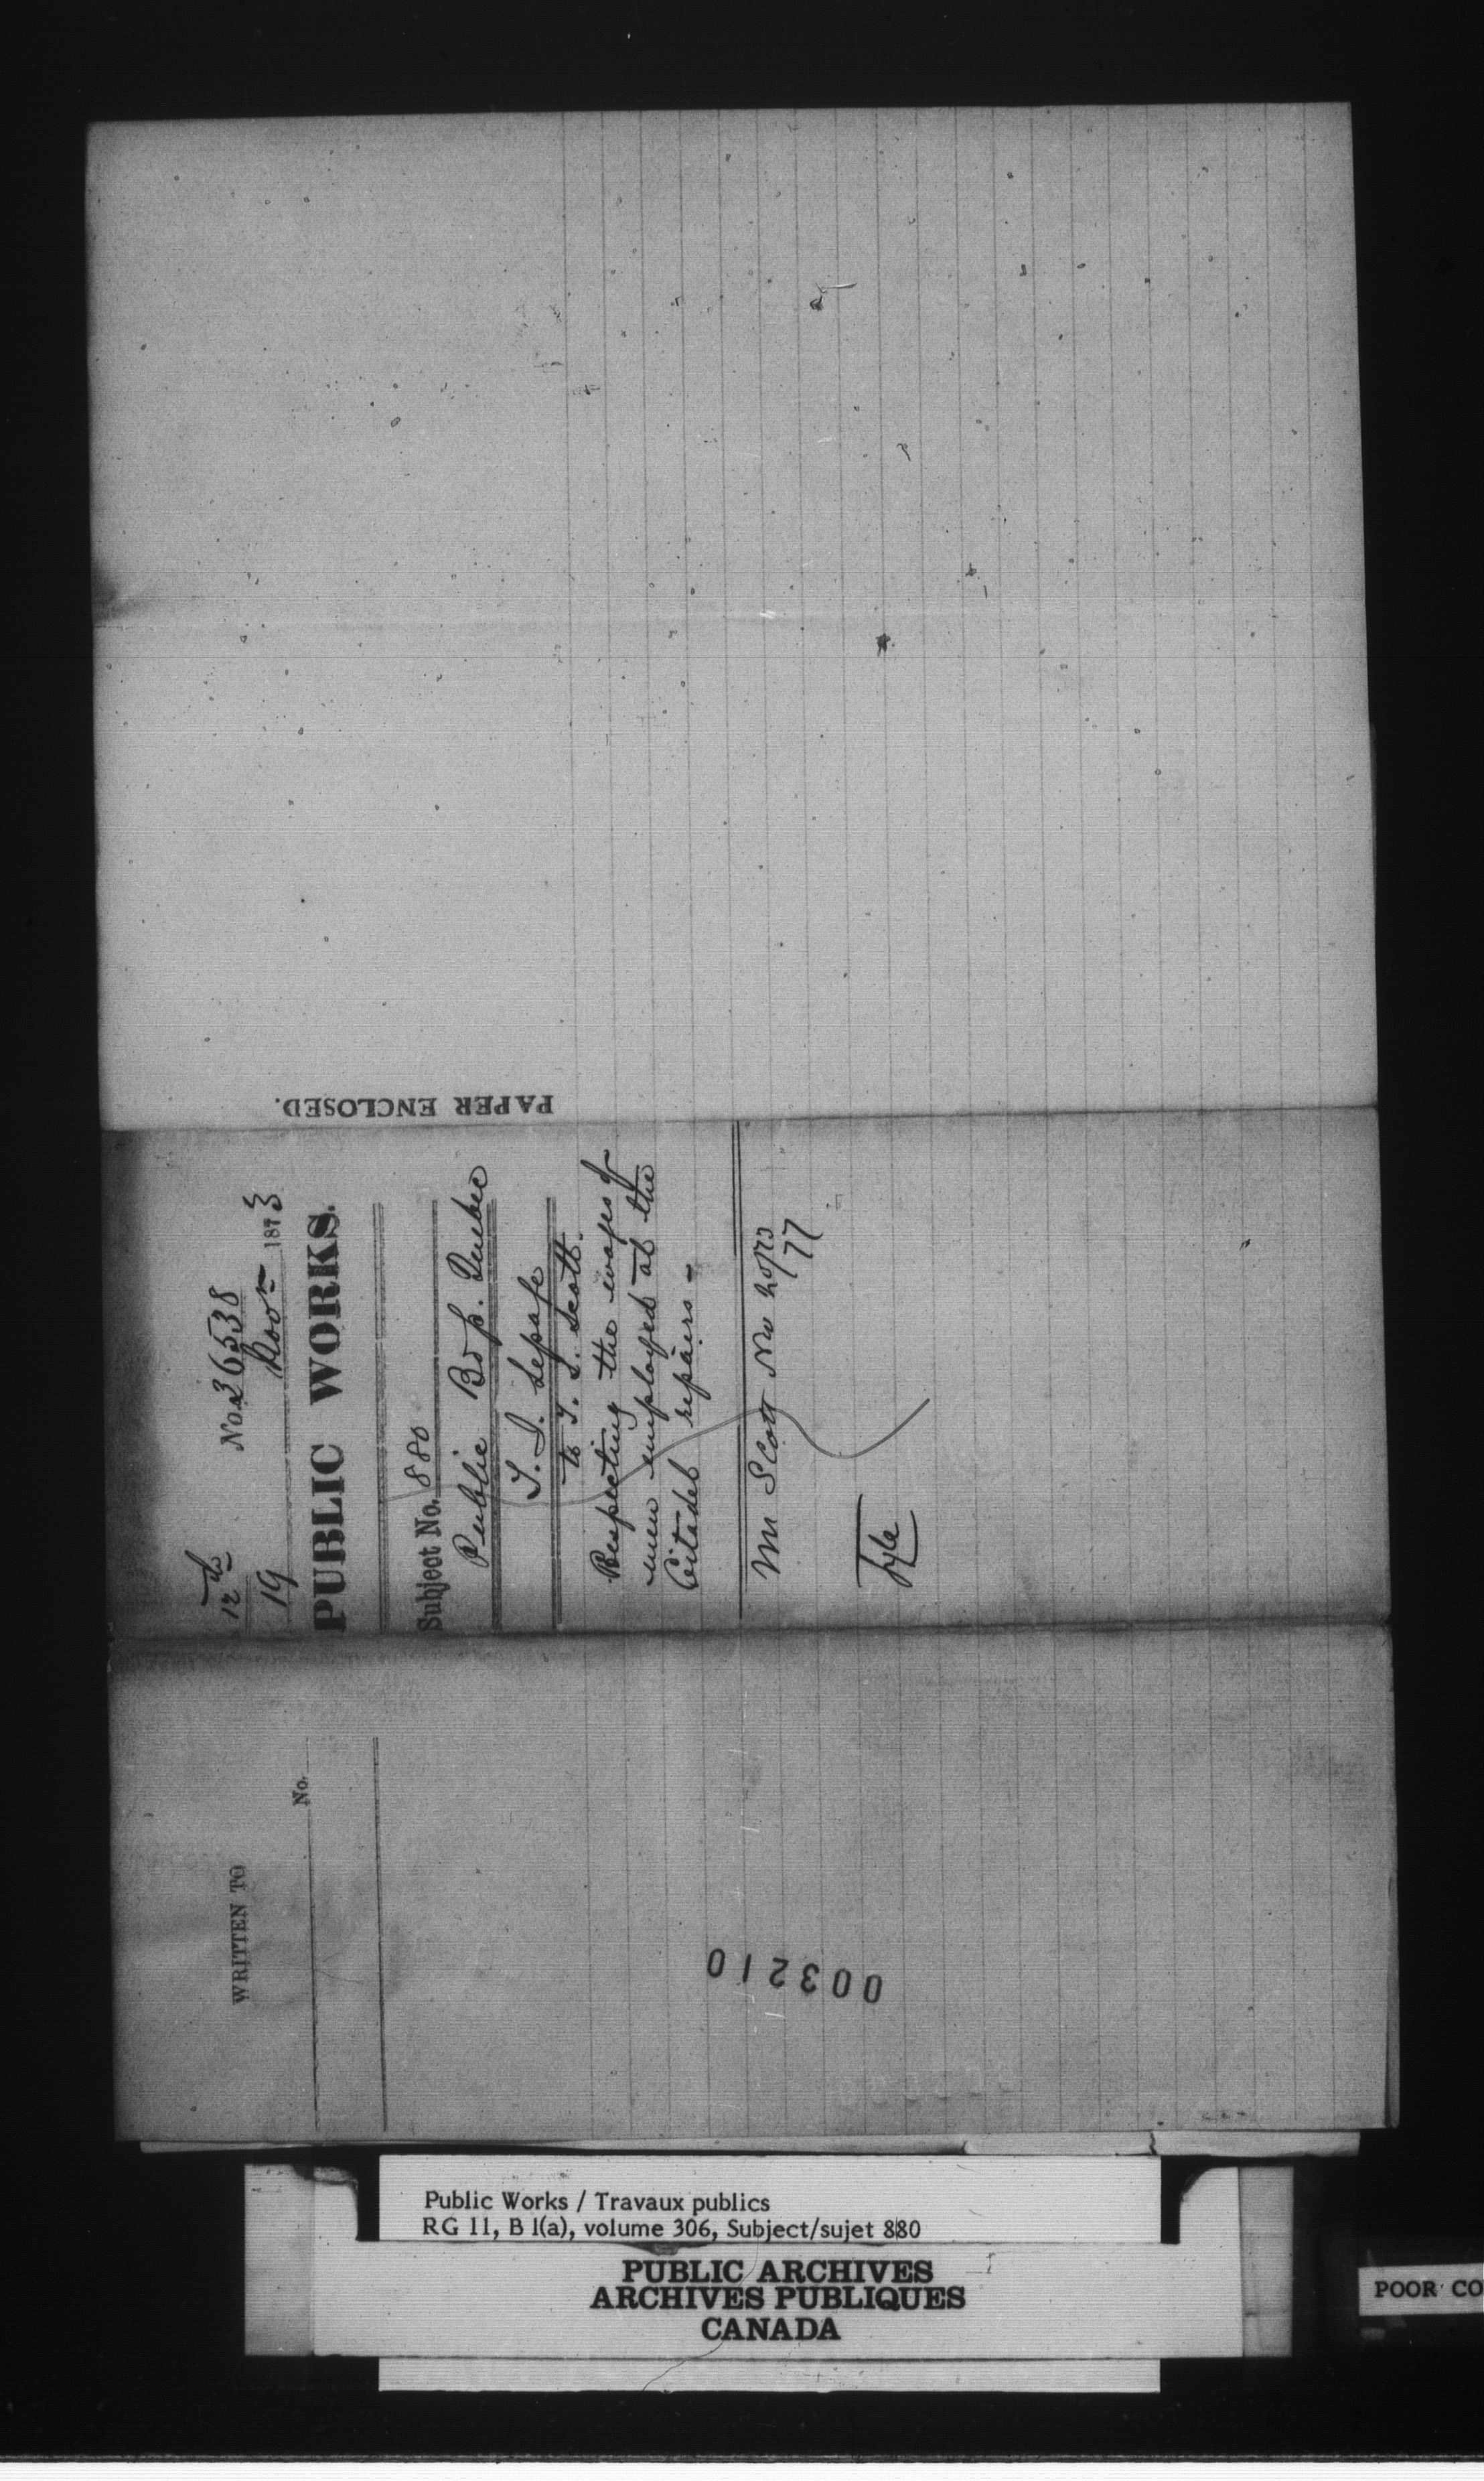 PAPER ENCLOSED.
12 do No. 36538
19 Novr 1873
PUBLIC WORKS.
Subject No. 880
Public Bdgs. Quebec
to T. S. Scott.
Respecting the wages of
men employed at the
Citadel repairs -
Mr Scott Nov 20/73
Fyle
WRITTEN TO
No.
003210
Public Works / Travaux publics
RG 11, B 1(a), volume 306, Subject/sujet 880
PUBLIC ARCHIVES
ARCHIVES PUBLIQUES
CANADA
POOR CO